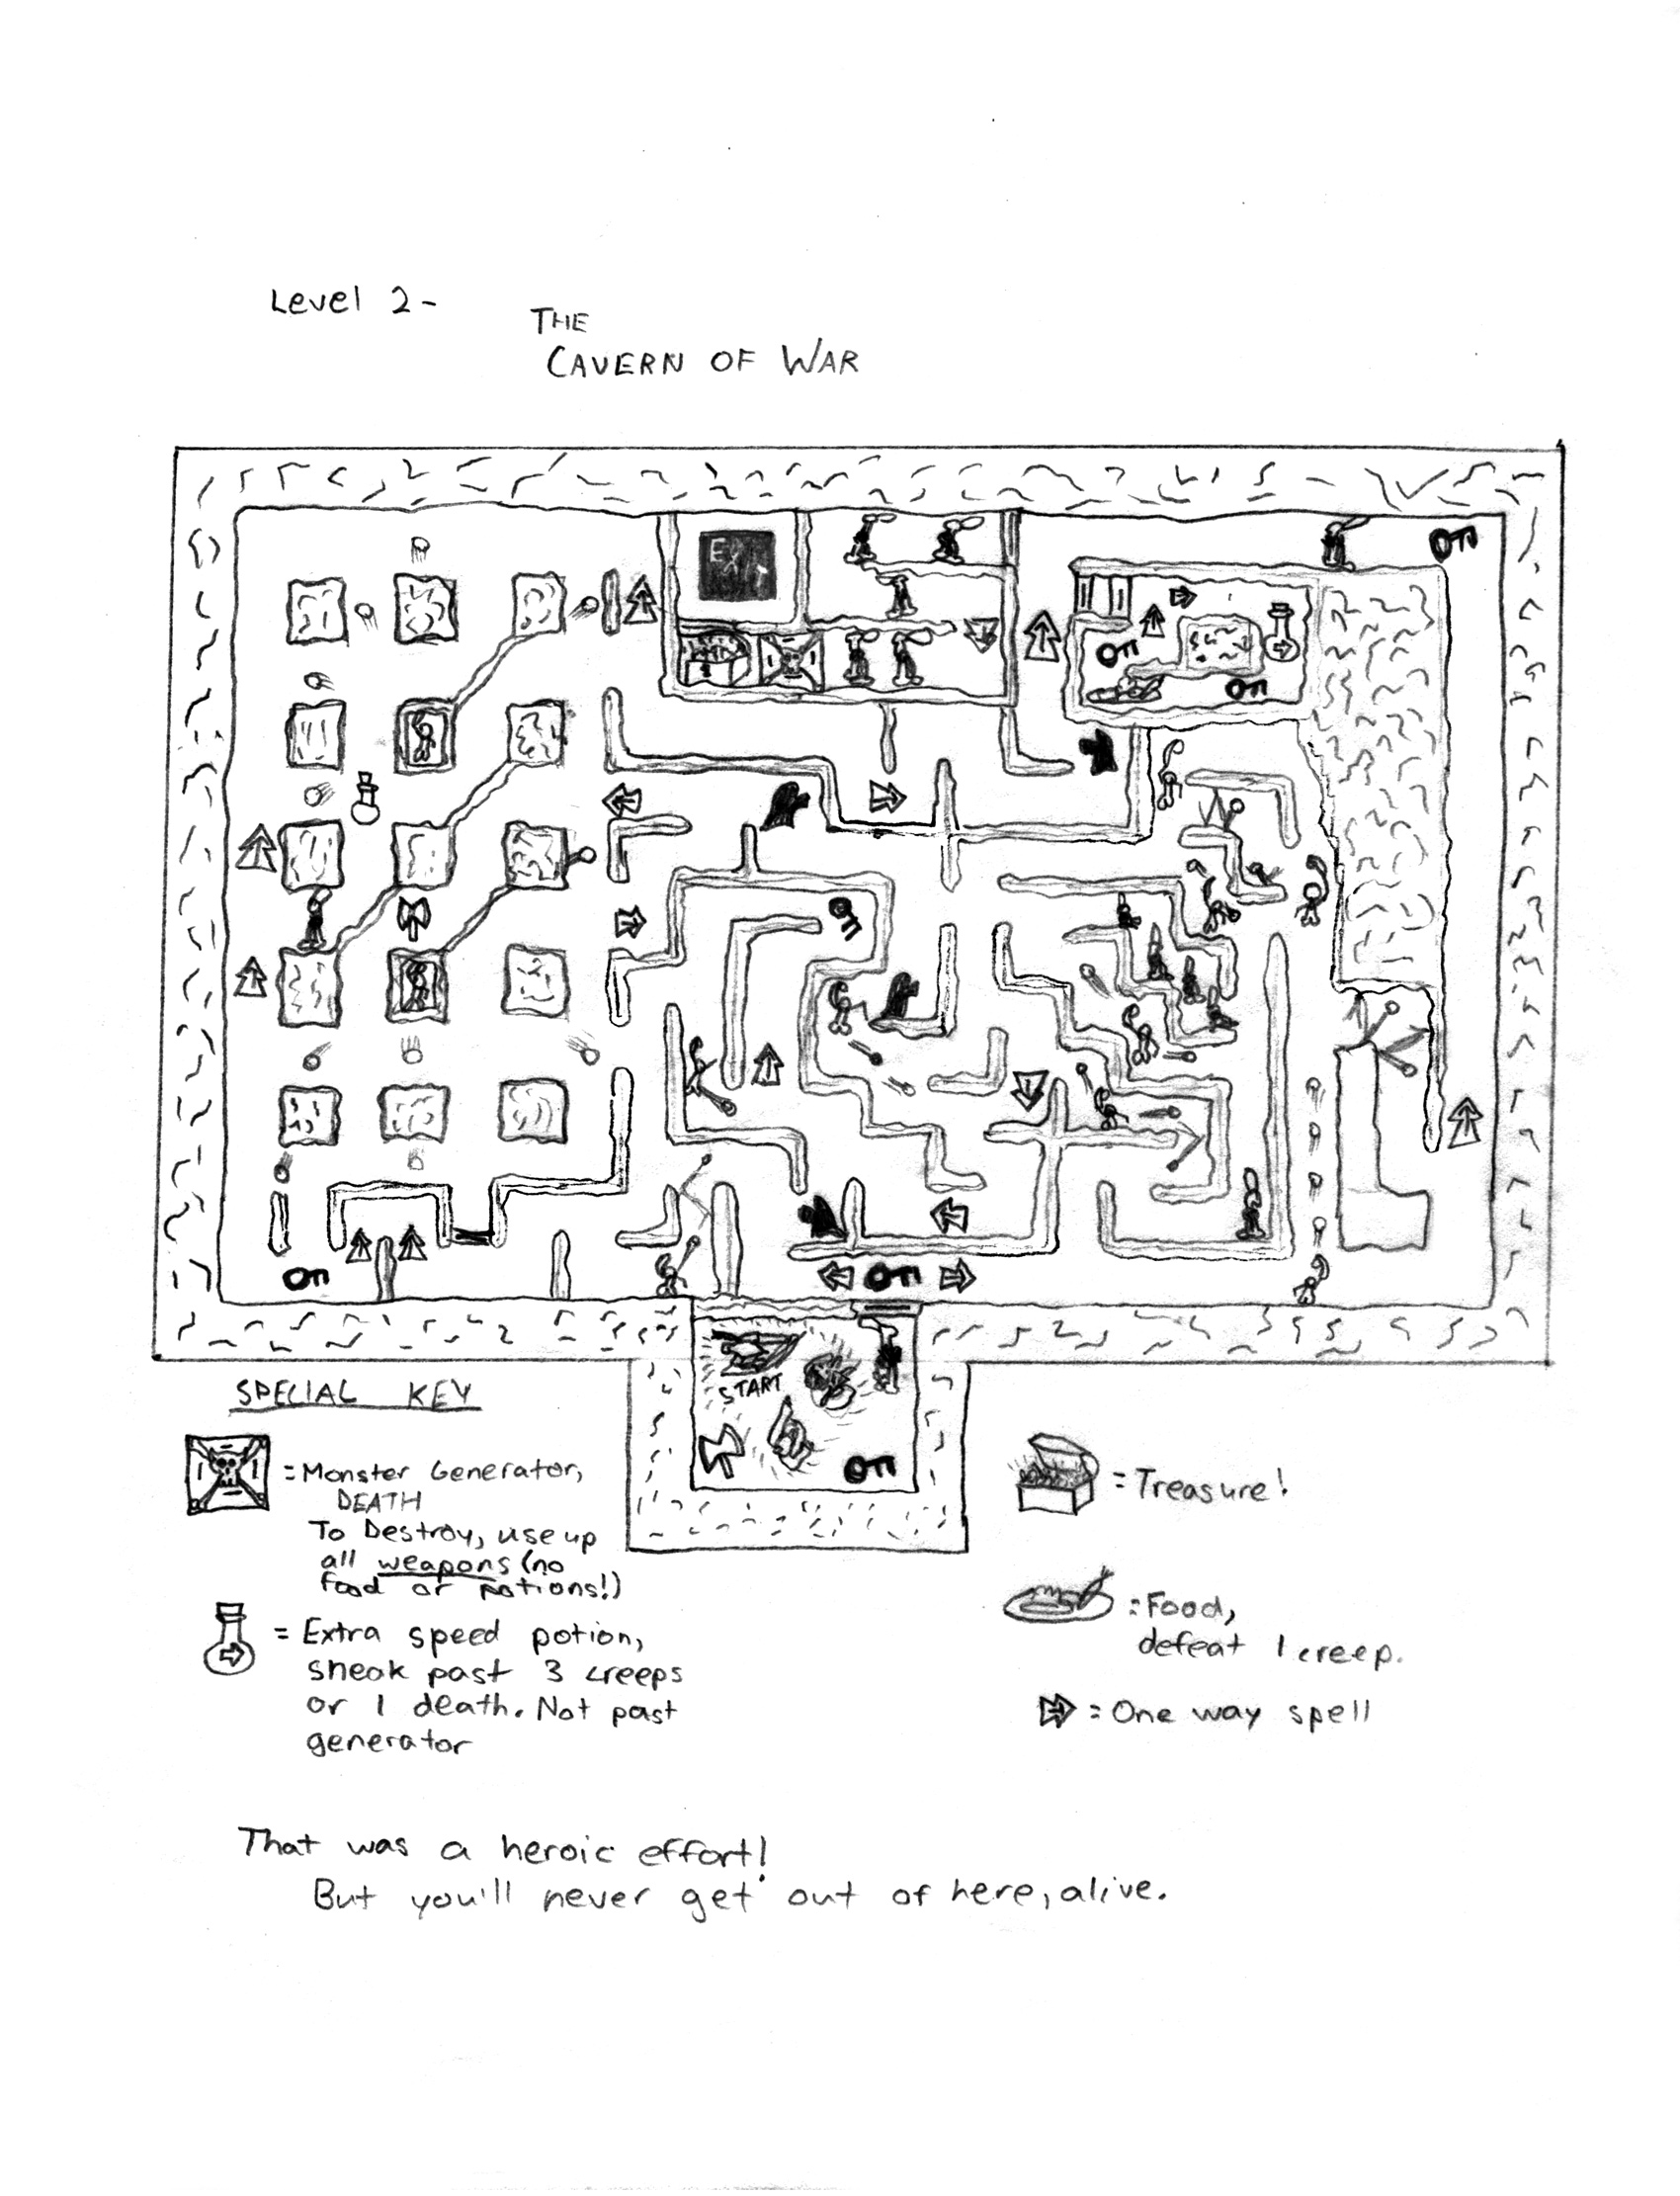 Level 2-
THE
CAVERN OF WAR
EXIT
START
SPECIAL KEY
= Monster Generator,
DEATH
To Destroy, use up
all weapons (no
food or potions!)
= Extra speed potion,
sneak past 3 creeps
or 1 death. Not past
generator
= Treasure!
= Food,
defeat 1 creep.
= One way spell
That was a heroic effort!
But you'll never get out of here, alive.